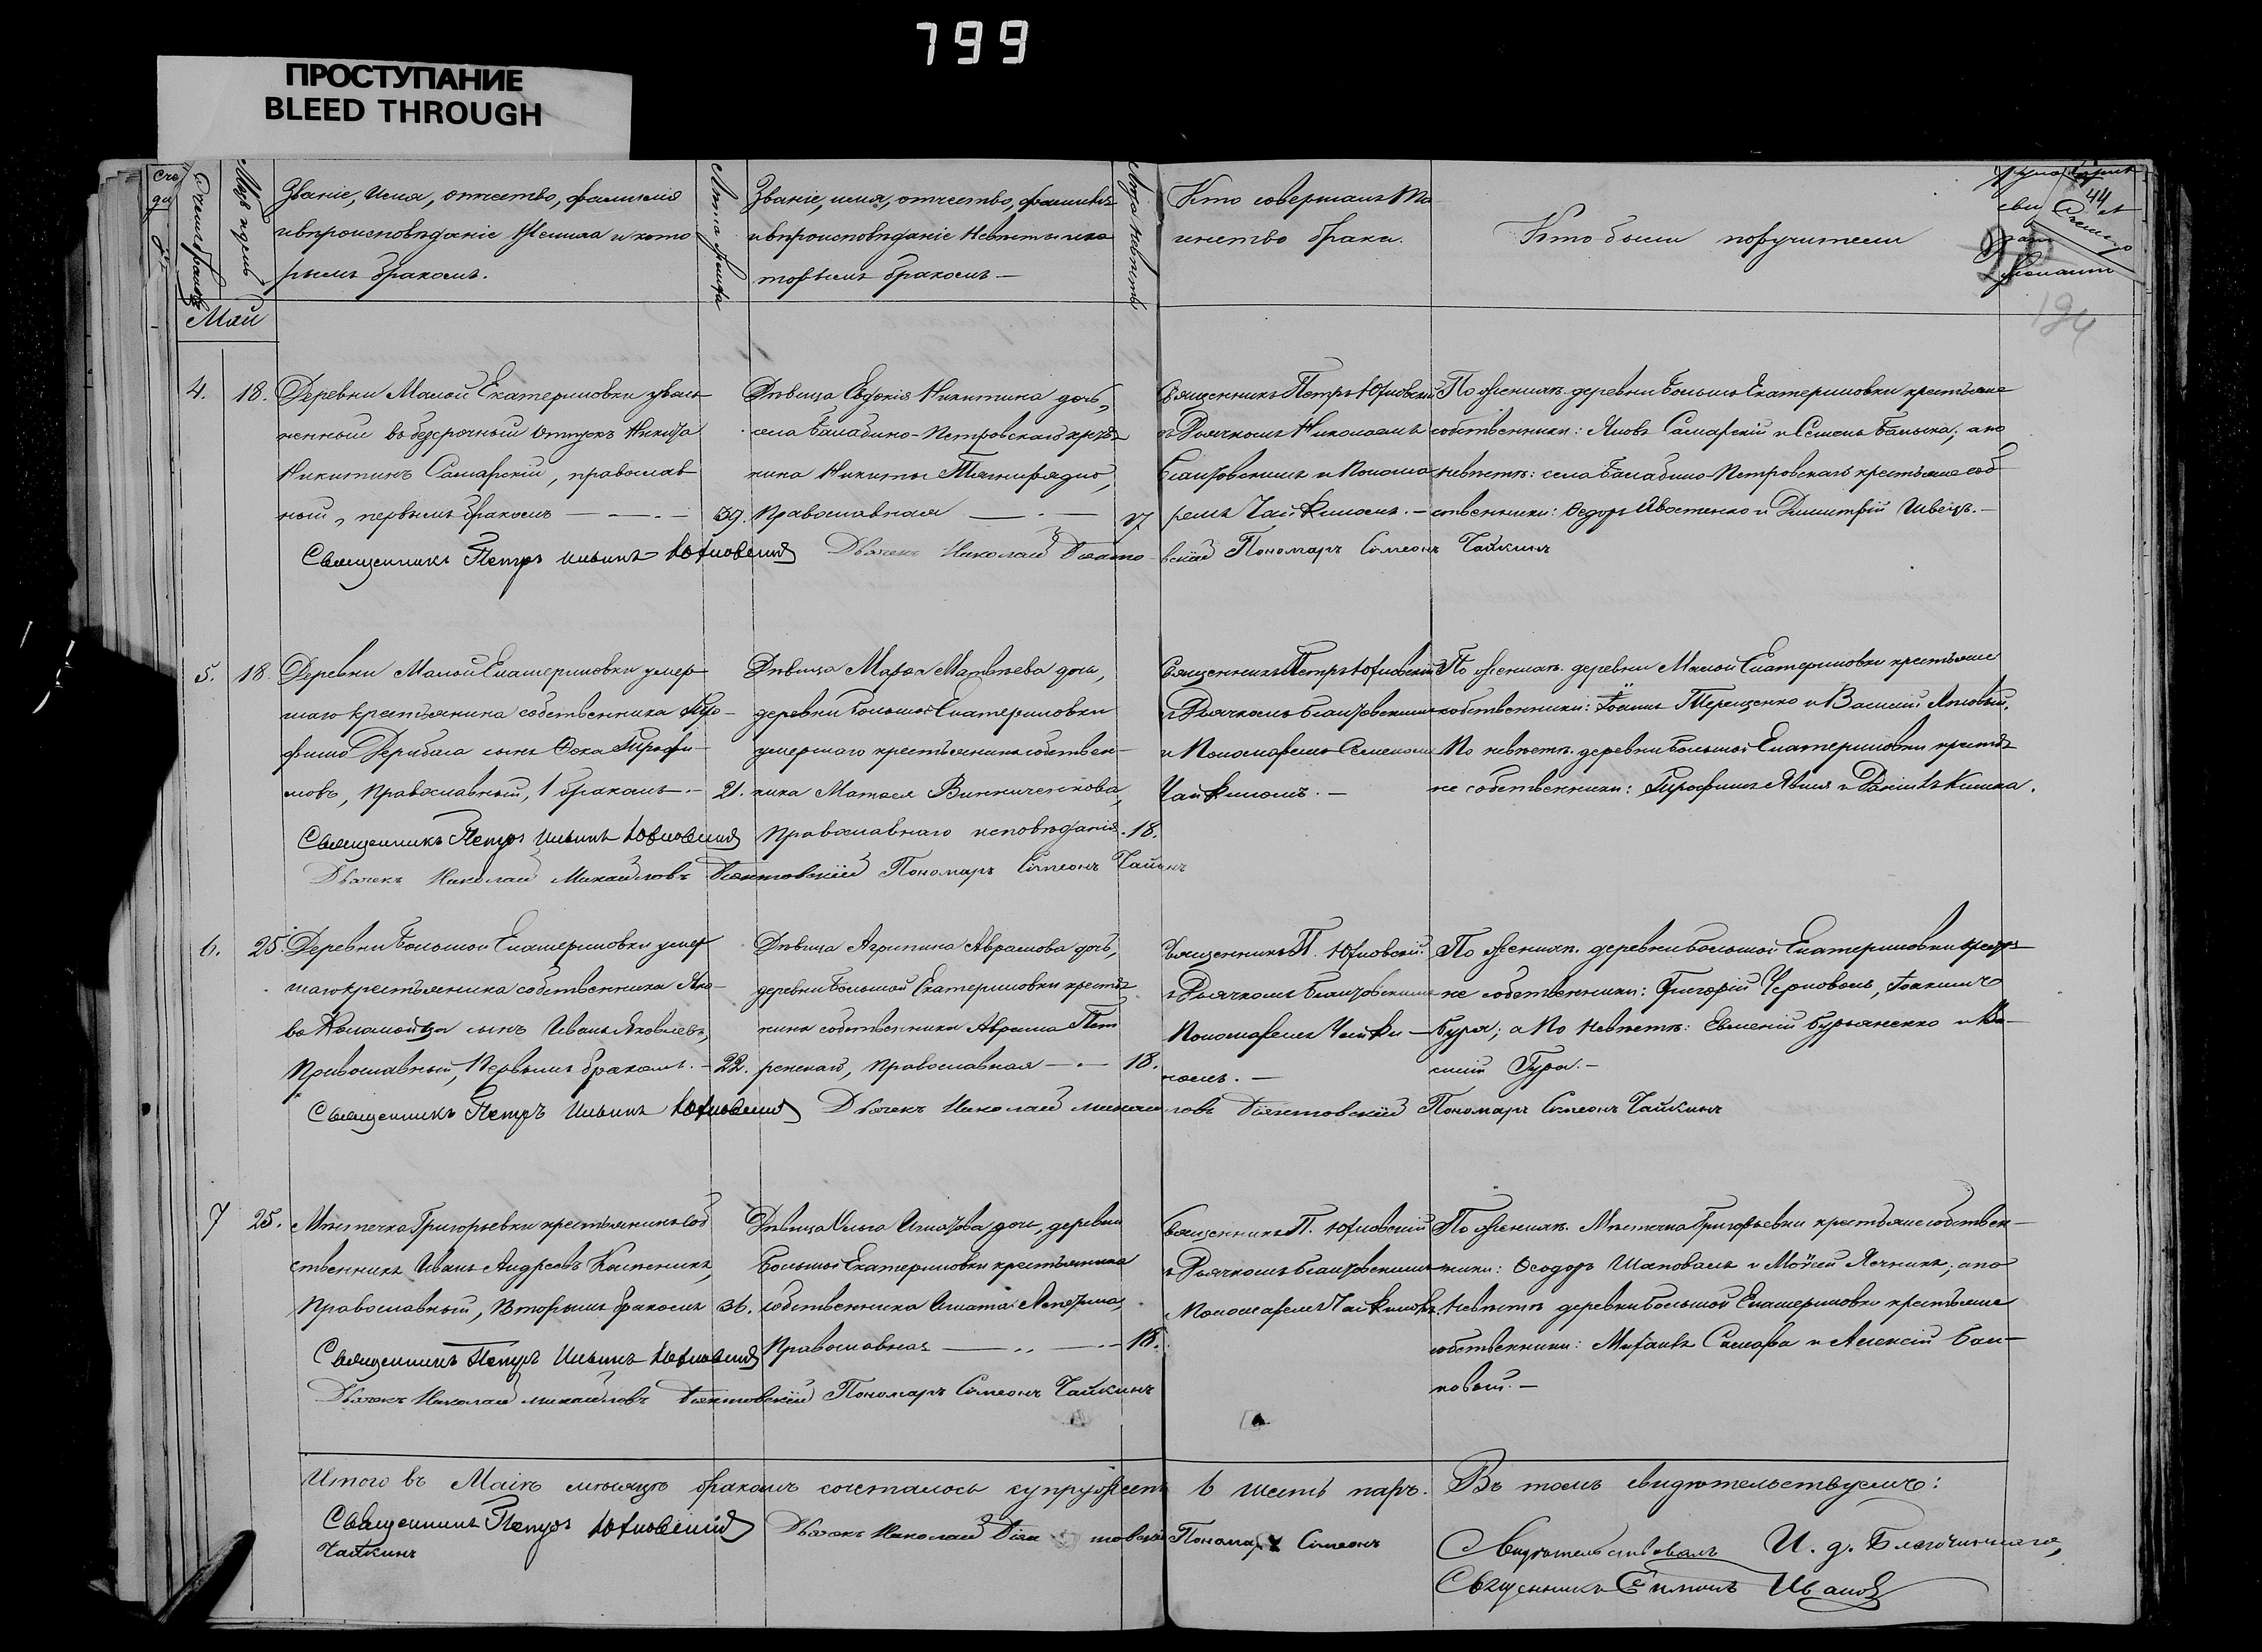 799
ПРОСТУПАНИЕ
BLEED THROUGH
Званіе, имя, отчество, фамилія
и вѣроисповѣданіе жениха и кото
рымъ бракомъ.
Лѣта жениха
Званіе, имя, отчество, фамилія
и вѣроисповѣданіе невѣсты и ко
торымъ бракомъ —
Лѣта невѣсты
Кто совершалъ Та
инство брака.
Кто были поручители
44
194
Май
4. 18.
Деревни Малой Екатериновки уволь
ненный въ безсрочный отпускъ Никита
Никитинъ Самарскій, православ
ный, первымъ бракомъ — 39.
Дѣвица Евдокія Никитина дочь,
села Балабино-Петровскаго
Никиты
православная — 17
Священникъ Петръ Юхновскій
съ Дьячкомъ Николаемъ
и Понома
ремъ Чайкиномъ. —
По женихѣ. деревни Большой Екатериновки крестьяне
собственники: Яковъ Самарскій и Семенъ Балыка; а по
невѣстѣ: села Балабино-Петровскаго крестьяне соб
ственники: Ѳедоръ Ивостенко и Димитрій Швецъ. —
Священникъ Петръ Ильинъ Юхновскій Дьячекъ Николай
Пономарь Сѵмеонъ Чайкинъ
5. 18.
Деревни Малой Екатериновки умер
шаго крестьянина собственника Тро
фима Дерибаса сынъ Ѳока Трофи
мовъ, православный, 1 бракомъ. — 21.
Дѣвица Марѳа Матвѣева дочь,
деревни Большой Екатериновки
умершаго крестьянина собствен
ника Матѳея Винниченкова,
православнаго исповѣданія. 18.
Священникъ Петръ Юхновскій
съ Дьячкомъ
и Пономаремъ Семеномъ
Чайкиномъ. —
По женихѣ. деревни Малой Екатериновки крестьяне
собственники: Іоаннъ Терещенко и Василій Яловый.
По невѣстѣ. деревни Большой Екатериновки крестья
не собственники: Трофимъ Явня и Даніилъ Кишка.
Священникъ Петръ Ильинъ Юхновскій
Дьячекъ Николай Михайловъ Пономарь Сѵмеонъ Чайкинъ
6. 25.
Деревни Большой Екатериновки умер
шаго крестьянина собственника Яко
ва Коломойца сынъ Иванъ Яковлевъ,
православный, первымъ бракомъ. — 22.
Дѣвица Агрипина Аврамова дочь,
деревни Большой Екатериновки крестья
нина собственника Аврама Пет
ренкова, православная — 18.
Священникъ П. Юхновскій
съ Дьячкомъ
Пономаремъ Чайки
номъ. —
По женихѣ. деревни Большой Екатериновки крестья
не собственники: Григорій Черноволъ, Іоакимъ
Буря; а по невѣстѣ: Евмений Бурьяненко и Ва
силій Гура. —
Священникъ Петръ Ильинъ Юхновскій Дьячекъ Николай Михайловъ Пономарь Сѵмеонъ Чайкинъ
7 25.
Мѣстечка Григорьевки крестьянинъ соб
ственникъ Иванъ Андреевъ Колтеникъ,
православный, вторымъ бракомъ 36.
Дѣвица Ульга Игнатова дочь, деревни
Большой Екатериновки крестьянина
собственника Игната
православная — 18.
Священникъ П. Юхновскій
съ Дьячкомъ
Пономаремъ Чайкиномъ.
По женихѣ. Мѣстечка Григорьевки крестьяне собствен
ники: Ѳеодоръ Шаповалъ и Моѵсей Ячникъ; а по
невѣстѣ деревни Большой Екатериновки крестьяне
собственники: Михаилъ Самара и Алексій Бал
ковый. —
Священникъ Петръ Ильинъ Юхновскій
Дьячекъ Николай Михайловъ Пономарь Сѵмеонъ Чайкинъ
Итого въ Маѣ мѣсяцѣ бракомъ сочеталось супружествъ 6 шесть паръ. Въ томъ свидѣтельствуемъ:
Священникъ Петръ Юхновскій Дьячекъ Николай Пономарь Сѵмеонъ
Чайкинъ
Свидѣтельствовалъ И. д. Благочиннаго,
Священникъ Ивановъ